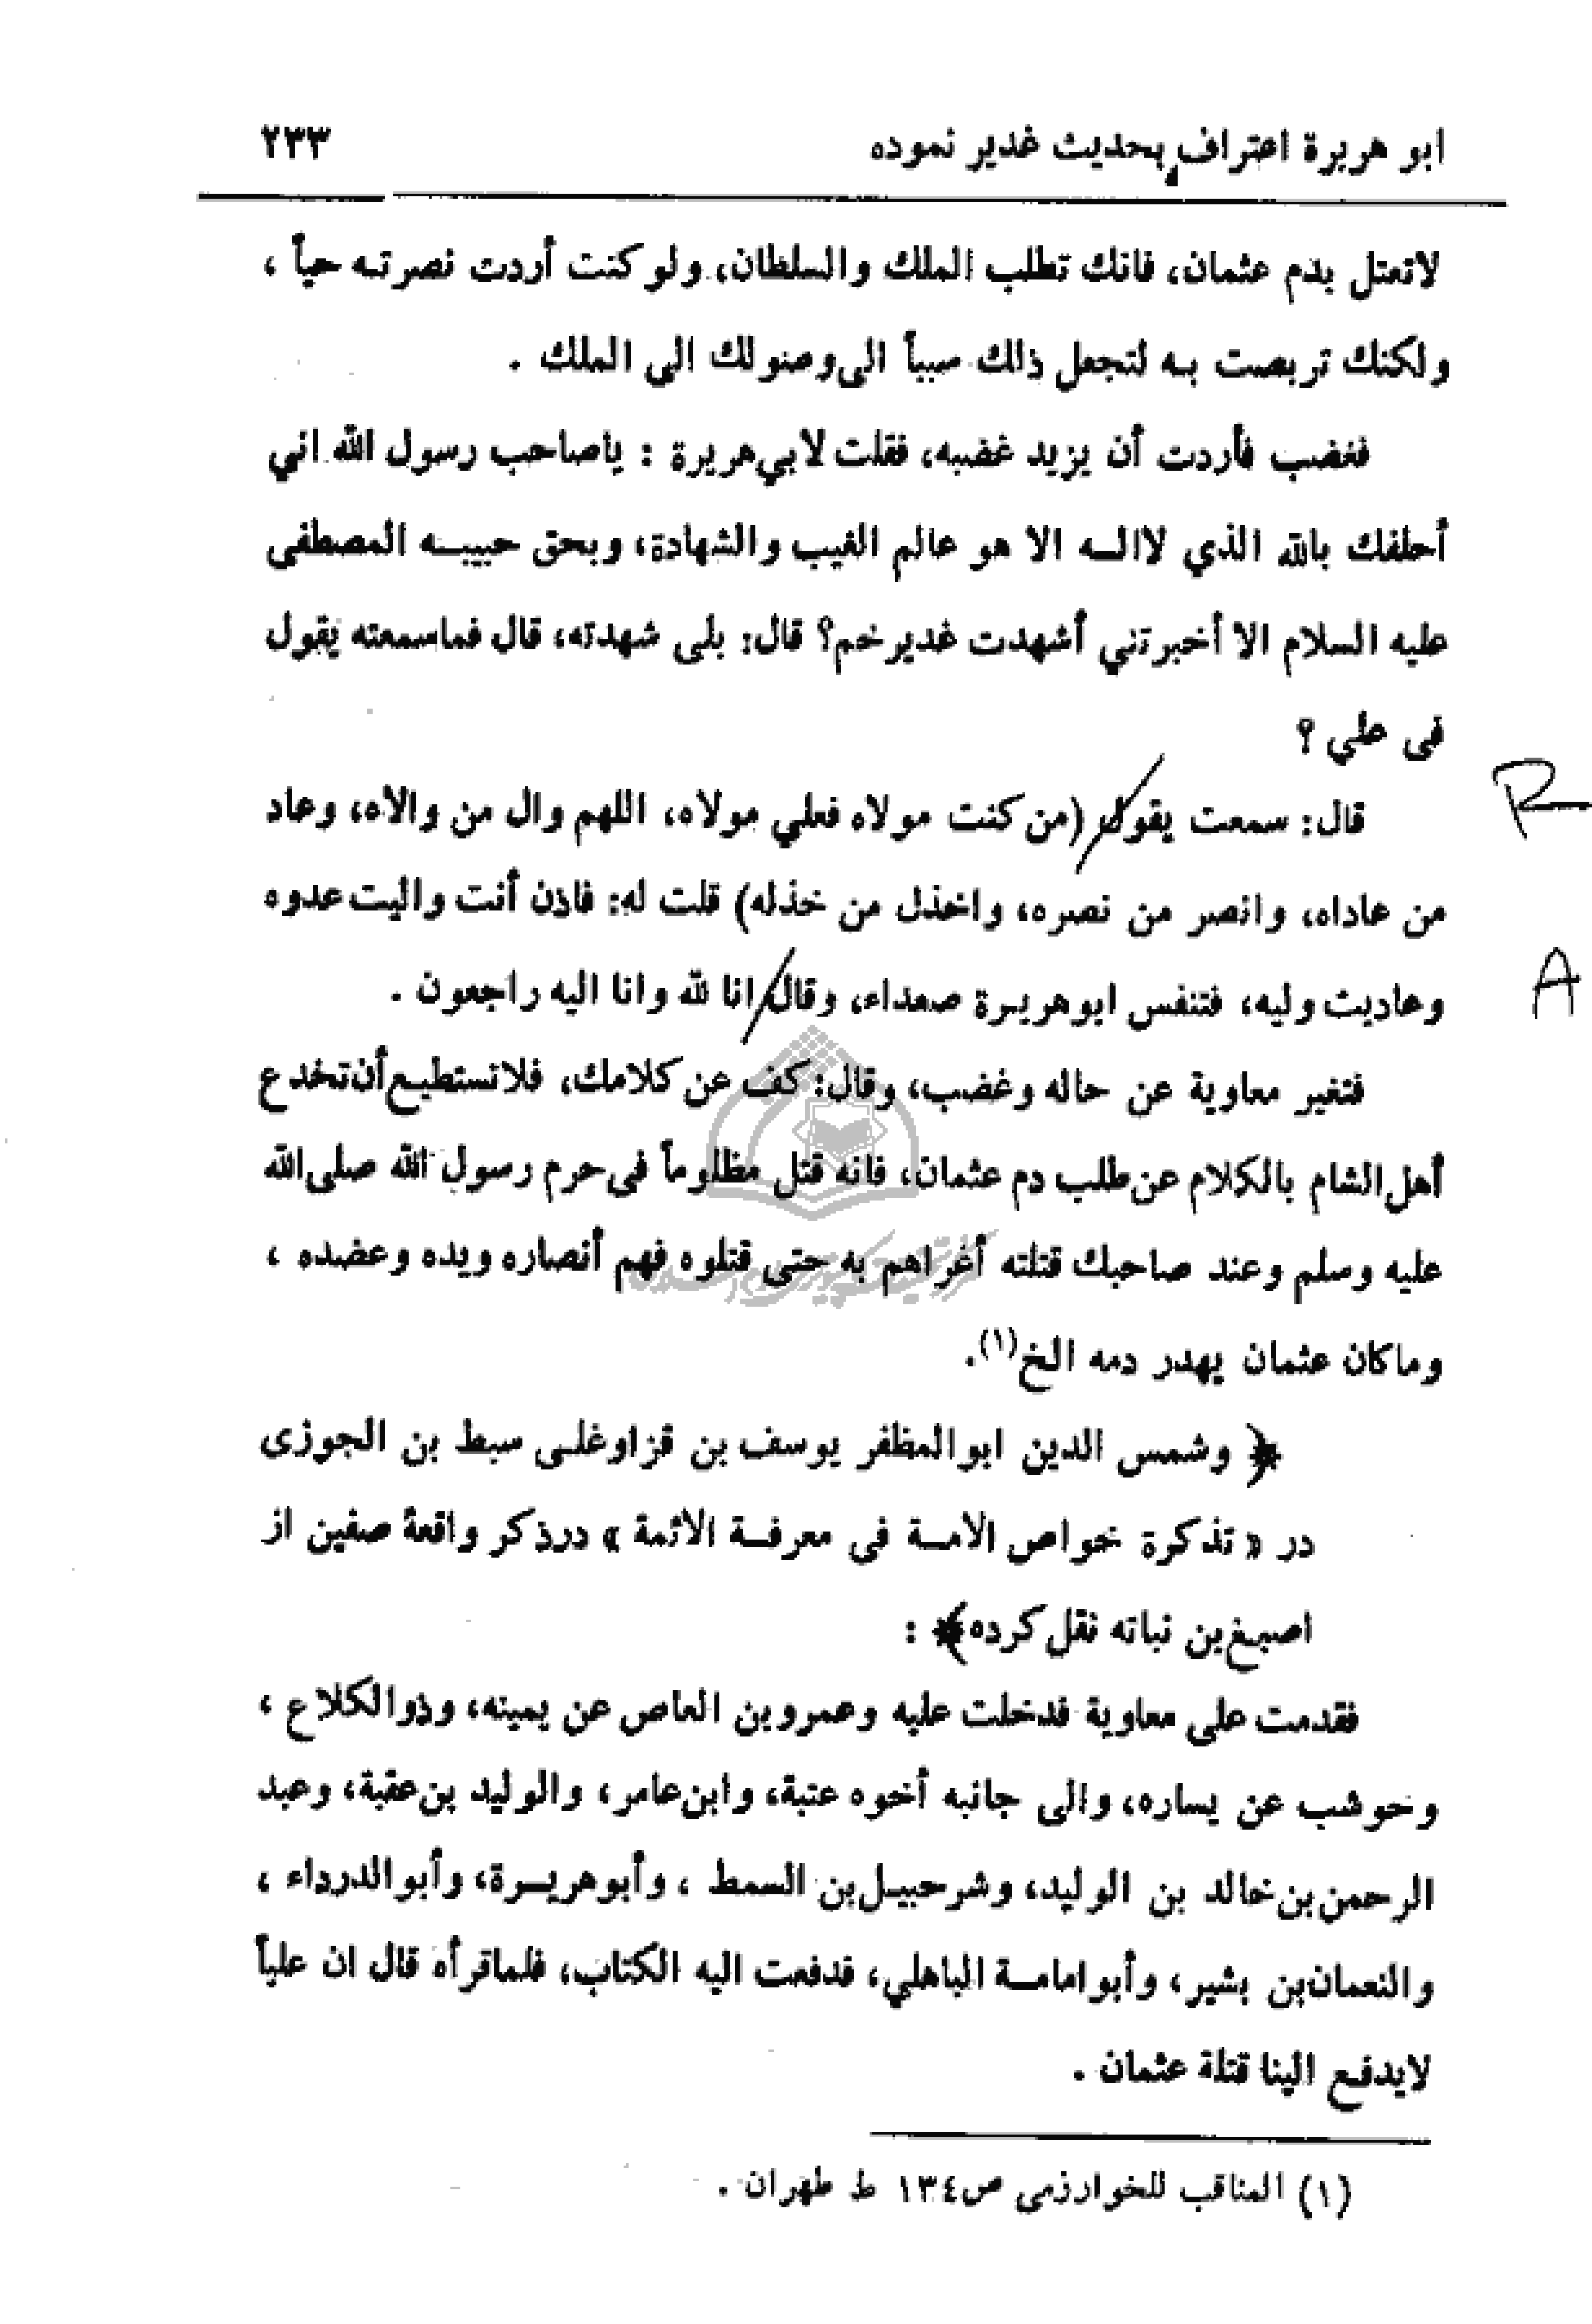 ابو هريرة اعتراف بحديث غدير نموده ٢٣٣
لاتعتل بدم عثمان، فانك تطلب الملك والسلطان، ولو كنت أردت نصرته حياً ،
ولكنك تربصت به لتجعل ذلك سبباً الى وصولك الى الملك .
فغضب فأردت أن يزيد غضبه، فقلت لابي هريرة : ياصاحب رسول الله اني
أحلفك بالله الذي لااله الا هو عالم الغيب والشهادة، وبحق حبيبه المصطفى
عليه السلام الا أخبرتني أشهدت غدير خم؟ قال: بلى شهدته، قال فماسمعته يقول
فى علي ؟
قال: سمعت يقول (من كنت مولاه فعلي مولاه، اللهم وال من والاه، وعاد
R
من عاداه، وانصر من نصره، واخذل من خذله) قلت له: فاذن أنت واليت عدوه
وعاديت وليه، فتنفس ابوهريرة صعداء، وقال انا لله وانا اليه راجعون .
A
فتغير معاوية عن حاله وغضب، وقال: كف عن كلامك، فلاتستطيع أن تخدع
أهل الشام بالكلام عن طلب دم عثمان، فانه قتل مظلوماً فى حرم رسول الله صلى الله
عليه وسلم وعند صاحبك قتلته أغراهم به حتى قتلوه فهم أنصاره ويده وعضده ،
وماكان عثمان يهدر دمه الخ(١).
﴿ وشمس الدين ابوالمظفر يوسف بن قزاوغلى سبط بن الجوزى
در « تذكرة خواص الامة فى معرفة الائمة » درذكر واقعۀ صفين از
اصبغ بن نباته نقل كرده﴾ :
فقدمت على معاوية فدخلت عليه وعمروبن العاص عن يمينه، وذوالكلاع ،
وحوشب عن يساره، والى جانبه أخوه عتبة، وابن عامر، والوليد بن عقبة، وعبد
الرحمن بن خالد بن الوليد، وشرحبيل بن السمط ، وأبوهريرة، وأبوالدرداء ،
والنعمان بن بشير، وأبوامامة الباهلي، فدفعت اليه الكتاب، فلماقرأه قال ان علياً
لايدفع الينا قتلة عثمان .
(١) المناقب للخوارزمى ص١٣٤ ط طهران .